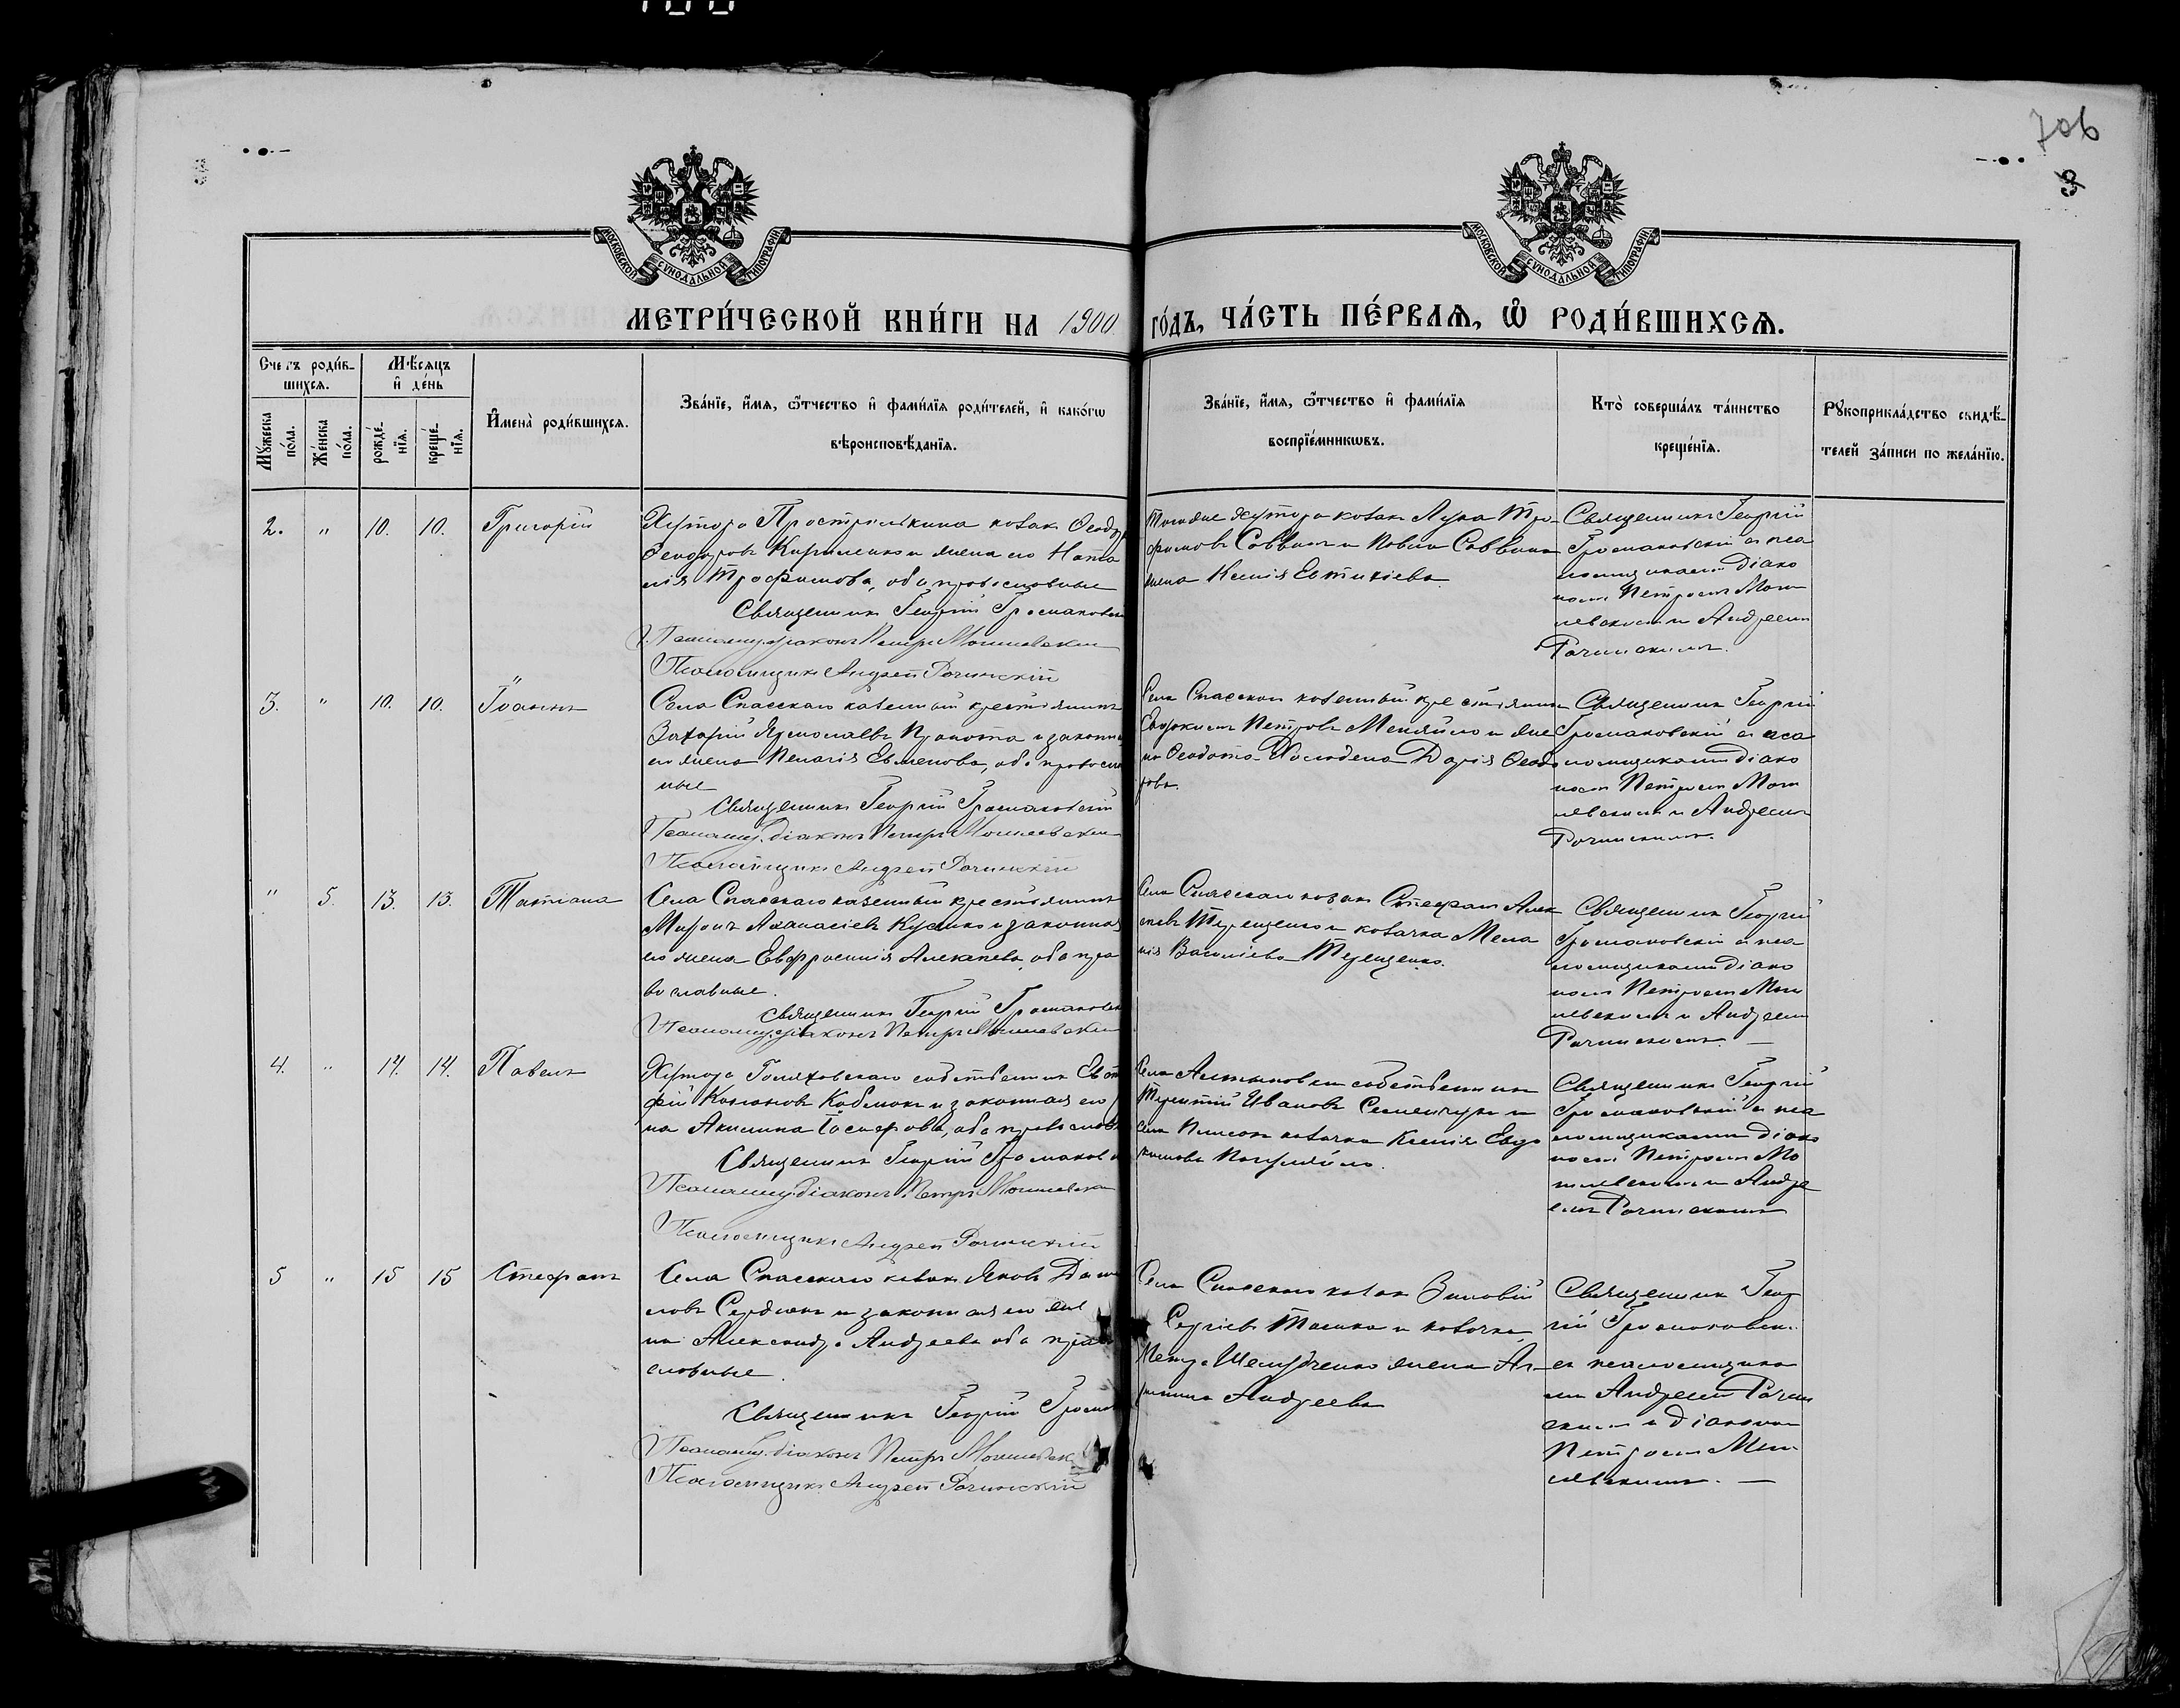 706
3
МОСКОВСКОЙ СѴНОДАЛЬНОЙ ТИПОГРАФІИ
МОСКОВСКОЙ СѴНОДАЛЬНОЙ ТИПОГРАФІИ
МЕТРИ́ЧЕСКОЙ КНИ́ГИ НА 1900 ГО́ДЪ, ЧА́СТЬ ПЕ́РВАѦ, Ѡ҆ РОДИ́ВШИХСѦ.
Счетъ роди́в-
шихсѧ.
Мꙋжеска по́ла.
Же́нска по́ла.
Мѣ́сѧцъ
и҆ де́нь
рожде́-
нїѧ.
креще́-
нїѧ.
И҆мена̀ роди́вшихсѧ.
Зва́нїе, и҆́мѧ, ѻ҆́тчество и҆ фами́лїѧ роди́телей, и҆ како́гѡ
вѣроисповѣ́данїѧ.
Зва́нїе, и҆́мѧ, ѻ҆́тчество и҆ фами́лїѧ
воспрїе́мникѡвъ.
Кто̀ соверша́лъ та́инство
креще́нїѧ.
Рꙋкоприкла́дство свидѣ́-
телей за́писи по жела́нїю.
2. " 10. 10. Григорій
Хутора Прострилькина козак Ѳеодор
Ѳеодоров Кириленко и жена его Ната
лія Трофимова, оба православные
Священник Георгій Громаковскій
Псаломщ. діаконъ Петръ Могилевскій
Псаломщикъ Андрей Рачинскій
Тогоже хутора козак Лука Тро
фимовъ Саввич и Павла Саввича
жена Ксенія Евтихіева
Священник Георгій
Громаковскій с пса
ломщиками діако
ном Петром Моги
левским и Андреем
Рачинским.
3. " 10. 10. Іоаннъ
Села Спасскаго казенный крестьянинъ
Захарій Ярмолаевъ и законная
его жена Пелагія Евменова, оба православ
ные
Священник Георгій Громаковскій
Псаломщ. діаконъ Петръ Могилевскій
Псаломщикъ Андрей Рачинскій
Села Спасскаго казенный крестьянин
Евдоким Петровъ и же
на Ѳеодота Дарія Ѳеодо
рова.
Священник Георгій
Громаковскій с пса
ломщиками діако
ном Петром Моги
левским и Андреем
Рачинским.
" 5. 13. 13. Татіана
Села Спасскаго казенный крестьянинъ
Миронъ Аѳанасіевъ и законная
его жена Евфросинія Алексіева, оба пра
вославные.
Священник Георгій Громаковскій
Псаломщ. діаконъ Петръ Могилевскій
Села Спасскаго козак Стефан Алек
сіевъ Терещенко и козачка Мела
нія Василіева Терещенко.
Священник Георгій
Громаковскій с пса
ломщиками діако
ном Петром Моги
левским и Андреем
Рачинским. —
4. " 14. 14. Павелъ
Хутора собственник Евст
фій и законная его
на Акилина Іосифова, оба православ
Священник Георгій Громаковскій
Псаломщ. діаконъ Петръ Могилевскій
Псаломщикъ Андрей Рачинскій
Села собственник
Терентій Ивановъ Семенчук и
села козачка Ксенія Евдо
кимова
Священник Георгій
Громаковскій с пса
ломщиками діако
ном Петром Мо
гилевским и Андре
ем Рачинским
5 " 15 15 Стефанъ
Села Спасскаго козак Яков Дани
лов Сердюк и законная его же
на Александра Андреева оба право
славные.
Священник Георгій Громак
Псаломщ. діаконъ Петръ Могилевск
Псаломщикъ Андрей Рачинскій
Села Спасскаго козак Зиновій
Сергіевъ и козачка
жена
Андреева
Священник Геор
гій Громаковскій
с псаломщика
ми Андреем Рачин
ским и діаконом
Петром Моги
левским. —